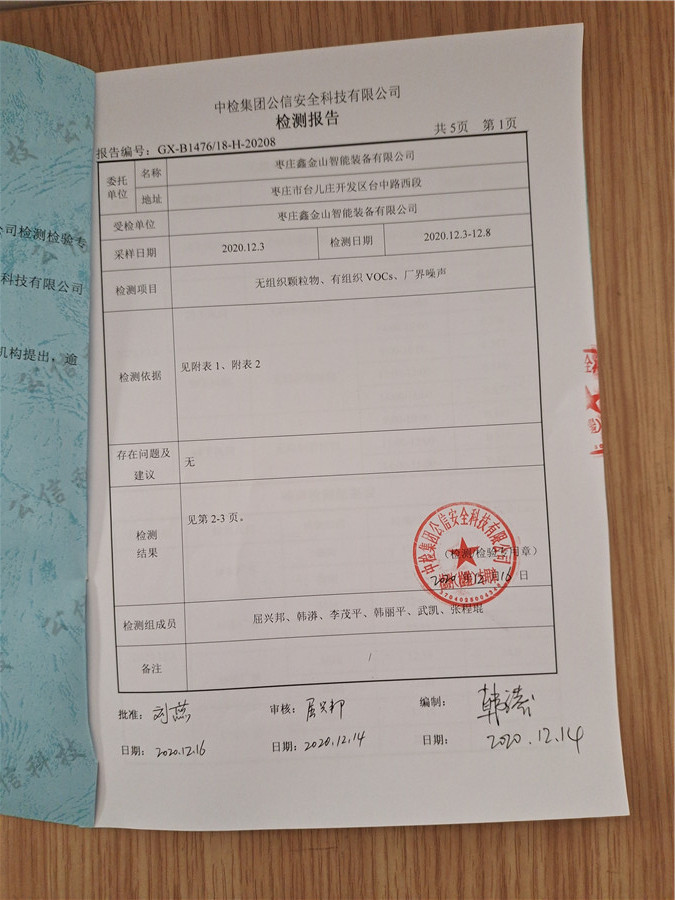 中检集团公信安全科技有限公司
检测报告
共 5页 第 1页
报告编号：GX-B1476/18-H-20208
委托单位 名称 枣庄鑫金山智能装备有限公司
地址 枣庄市台儿庄开发区台中路西段
受检单位 枣庄鑫金山智能装备有限公司
采样日期 2020.12.3 检测日期 2020.12.3-12.8
检测项目 无组织颗粒物、有组织 VOCs、厂界噪声
检测依据 见附表 1、附表 2
存在问题及建议 无
检测结果 见第 2-3 页。
中检集团公信安全科技有限公司
（检测检验专用章）
2020年12月16日
检测组成员 屈兴邦、韩漭、李茂平、韩丽平、武凯、张程琨
备注 /
批准：刘燕 审核：屈兴邦 编制：
日期：2020.12.16 日期：2020.12.14 日期：2020.12.14
公司检测检验专
科技有限公司
机构提出，逾
公信科技